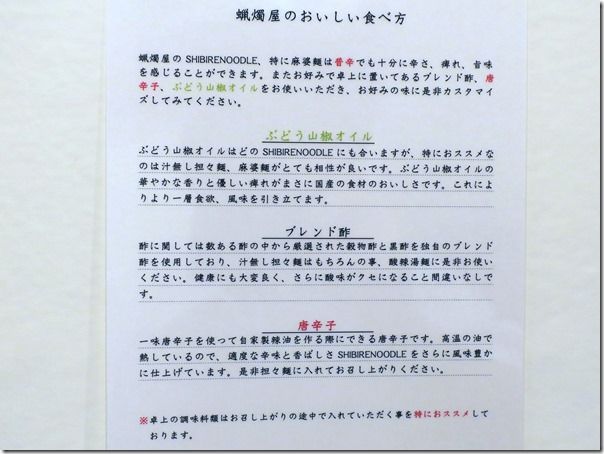 蝋燭屋のおいしい食べ方
蝋燭屋の SHIBIRENOODLE、特に麻婆麺は普辛でも十分に辛さ、痺れ、旨味
を感じることができます。またお好みで卓上に置いてあるブレンド酢、唐
辛子、ぶどう山椒オイルをお使いいただき、お好みの味に是非カスタマイ
ズしてみてください。
ぶどう山椒オイル
ぶどう山椒オイルはどの SHIBIRENOODLE にも合いますが、特におススメな
のは汁無し担々麺、麻婆麺がとても相性が良いです。ぶどう山椒オイルの
華やかな香りと優しい痺れがまさに国産の食材のおいしさです。これによ
りより一層食欲、風味を引き立てます。
ブレンド酢
酢に関しては数ある酢の中から厳選された穀物酢と黒酢を独自のブレンド
酢を使用しており、汁無し担々麺はもちろんの事、酸辣湯麺に是非お使い
ください。健康にも大変良く、さらに酸味がクセになること間違いなしで
す。
唐辛子
一味唐辛子を使って自家製辣油を作る際にできる唐辛子です。高温の油で
熱しているので、適度な辛味と香ばしさ SHIBIRENOODLE をさらに風味豊か
に仕上げています。是非担々麺に入れてお召し上がりください。
※卓上の調味料類はお召し上がりの途中で入れていただく事を特におススメして
おります。